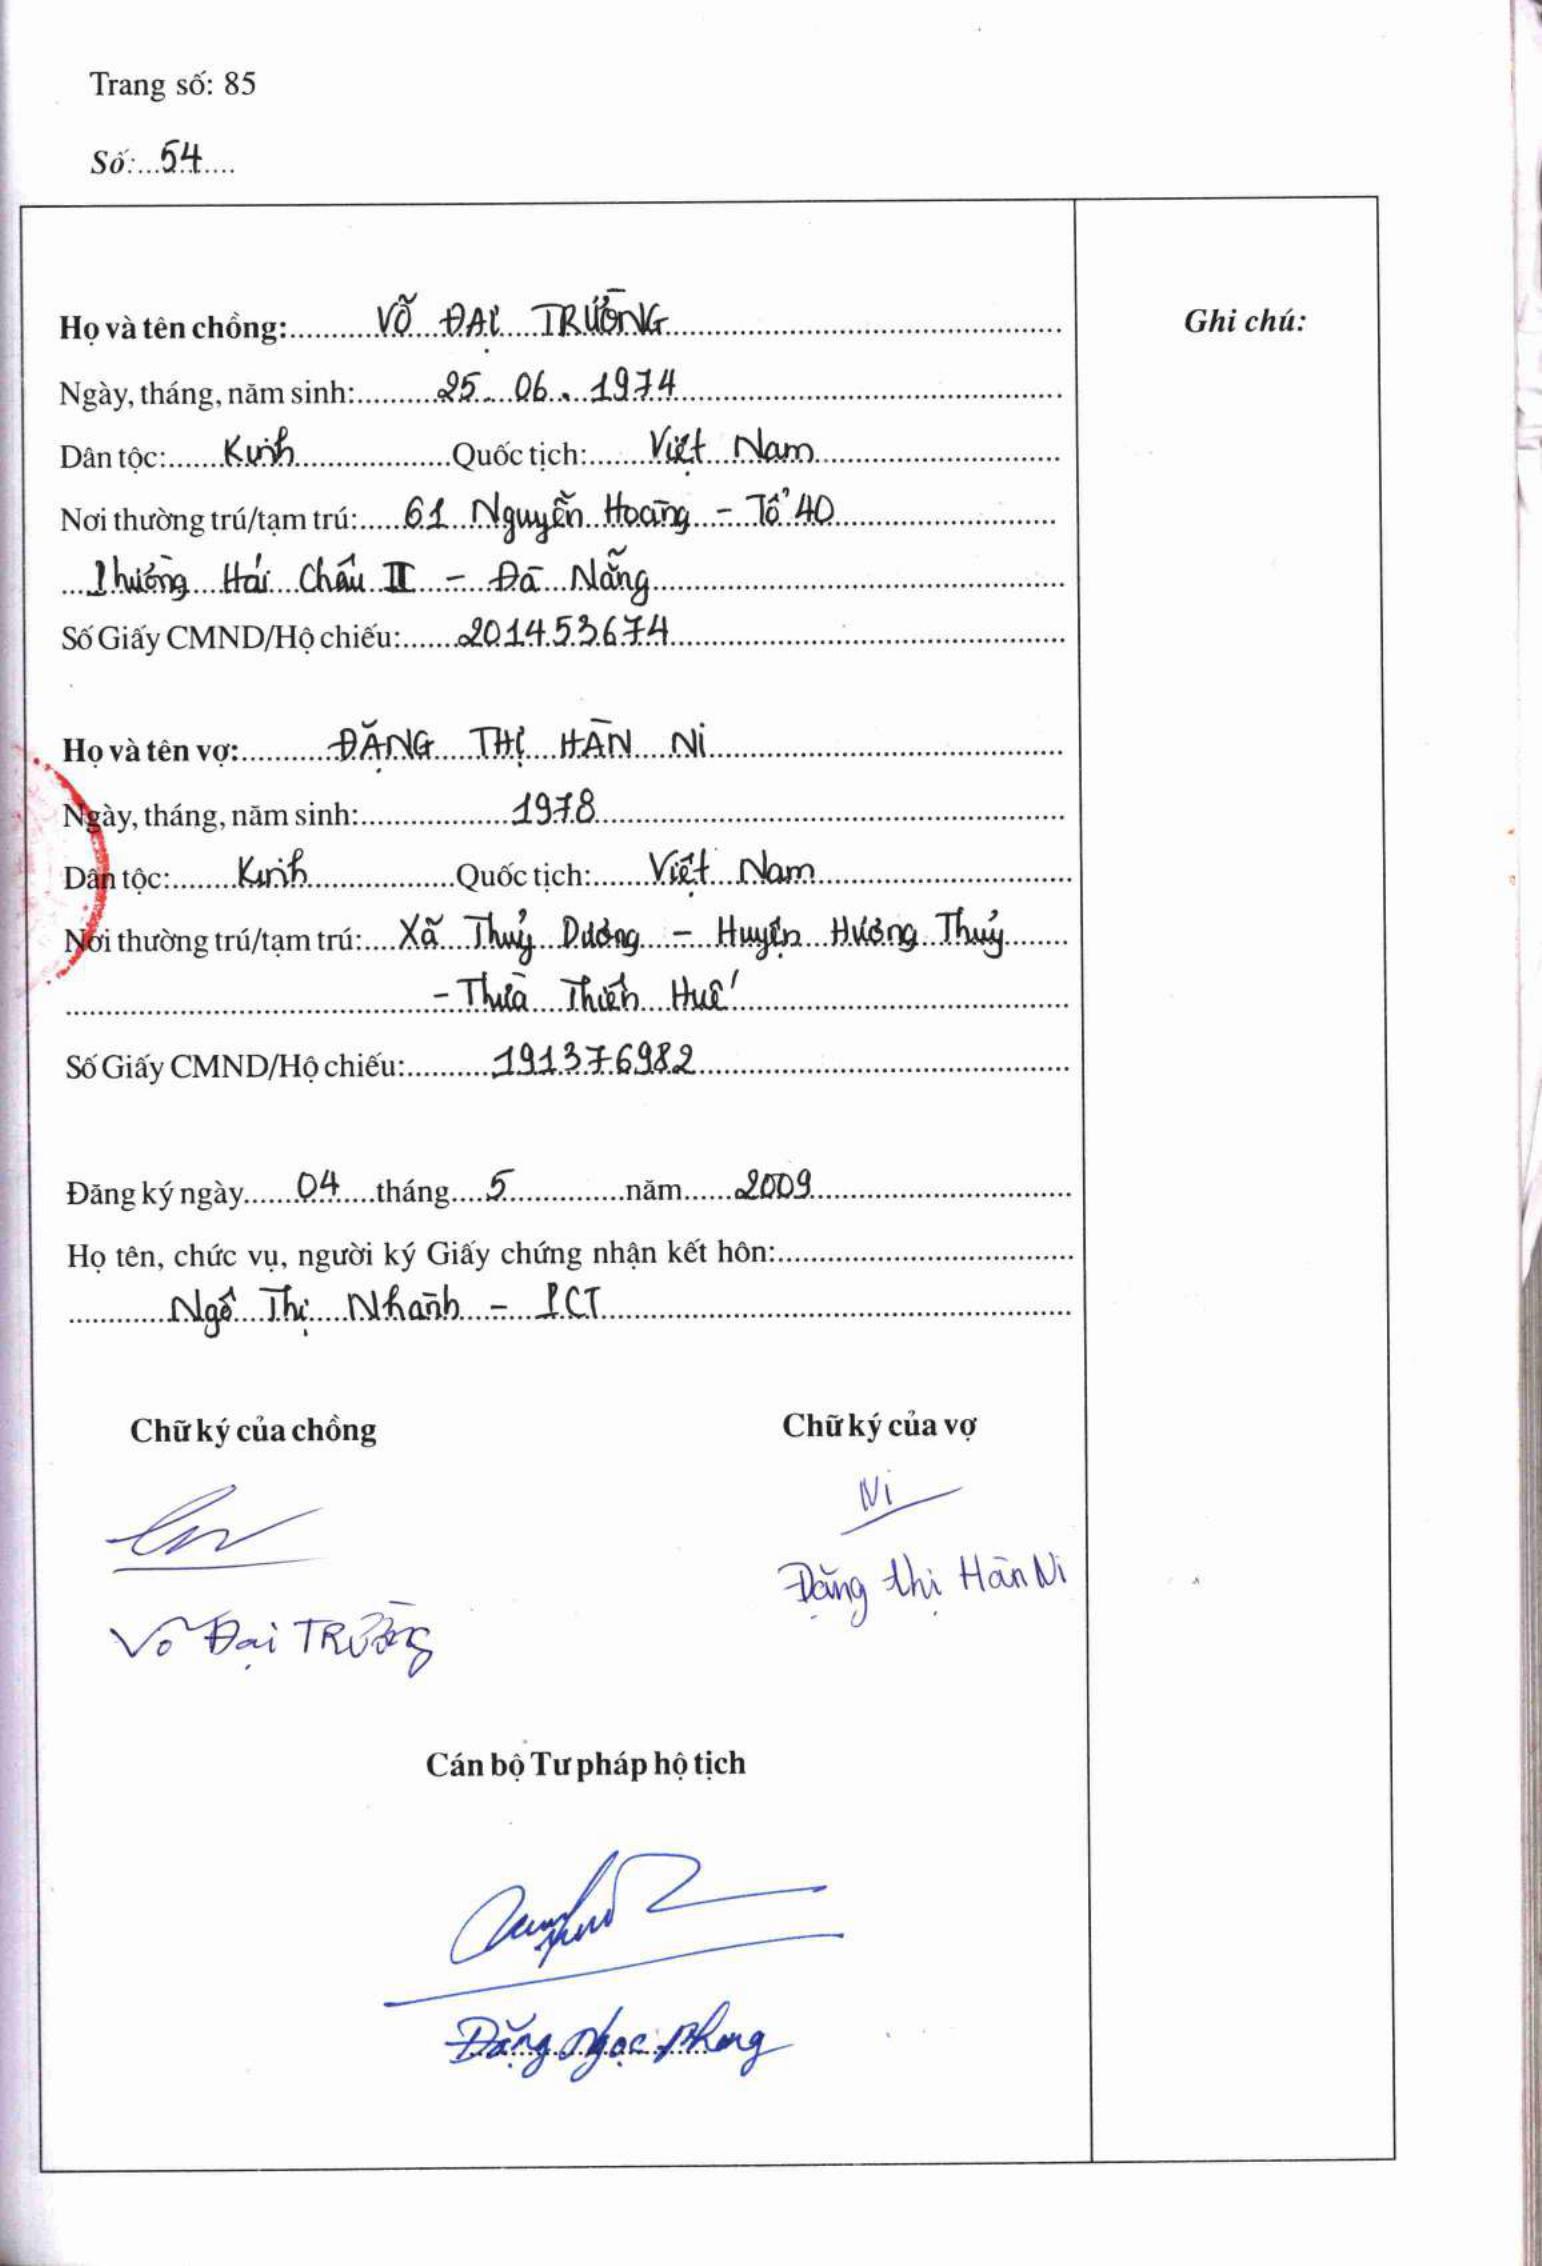 Trang số: 85
Số: 54
Họ và tên chồng: VÕ ĐẠI TRƯỜNG
Ghi chú:
Ngày, tháng, năm sinh: 25. 06. 1974
Dân tộc: Kinh Quốc tịch: Việt Nam
Nơi thường trú/tạm trú: 61 Nguyễn Hoàng - Tổ 40
Phường Hải Châu II - Đà Nẵng
Số Giấy CMND/Hộ chiếu: 201453674
Họ và tên vợ: ĐẶNG THỊ HÀN NI
Ngày, tháng, năm sinh: 1978
Dân tộc: Kinh Quốc tịch: Việt Nam
Nơi thường trú/tạm trú: Xã Thuỷ Dương - Huyện Hương Thuỷ
- Thừa Thiên Huế
Số Giấy CMND/Hộ chiếu: 191376982
Đăng ký ngày 04 tháng 5 năm 2009
Họ tên, chức vụ, người ký Giấy chứng nhận kết hôn:
Ngô Thị Nhành - PCT
Chữ ký của chồng Chữ ký của vợ
Ni
Đặng Thị Hàn Ni
Võ Đại TRƯỜNG
Cán bộ Tư pháp hộ tịch
Đặng Ngọc Phong